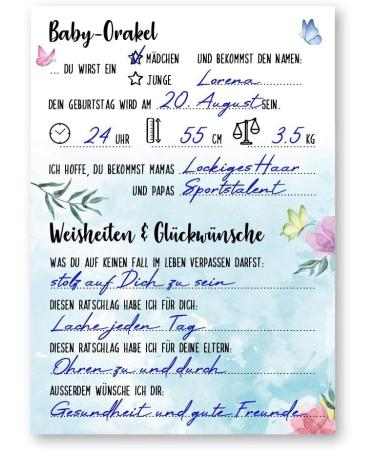 Baby-Orakel
... DU WIRST EIN ☆ MÄDCHEN UND BEKOMMST DEN NAMEN:
☆ JUNGE Lorena
DEIN GEBURTSTAG WIRD AM 20. August SEIN.
24 UHR 55 CM 3.5 KG
ICH HOFFE, DU BEKOMMST MAMAS Lockiges Haar
UND PAPAS Sportstalent
Weisheiten & Glückwünsche
WAS DU AUF KEINEN FALL IM LEBEN VERPASSEN DARFST:
stolz auf Dich zu sein
DIESEN RATSCHLAG HABE ICH FÜR DICH:
Lache jeden Tag
DIESEN RATSCHLAG HABE ICH FÜR DEINE ELTERN:
Ohren zu und durch
AUSSERDEM WÜNSCHE ICH DIR:
Gesundheit und gute Freunde